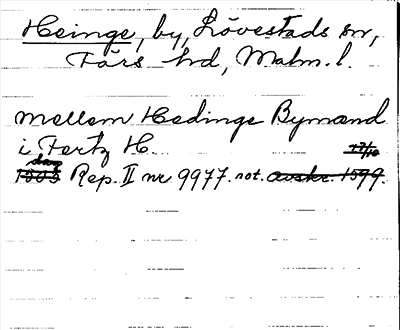 Heinge, by, Lövestads sn,
Färs hd, Malm. l.
mellom Hedinge Bymænd
i Fertz H. 17/10
1505 Rep. II nr 9977. not. avskr. 1599.